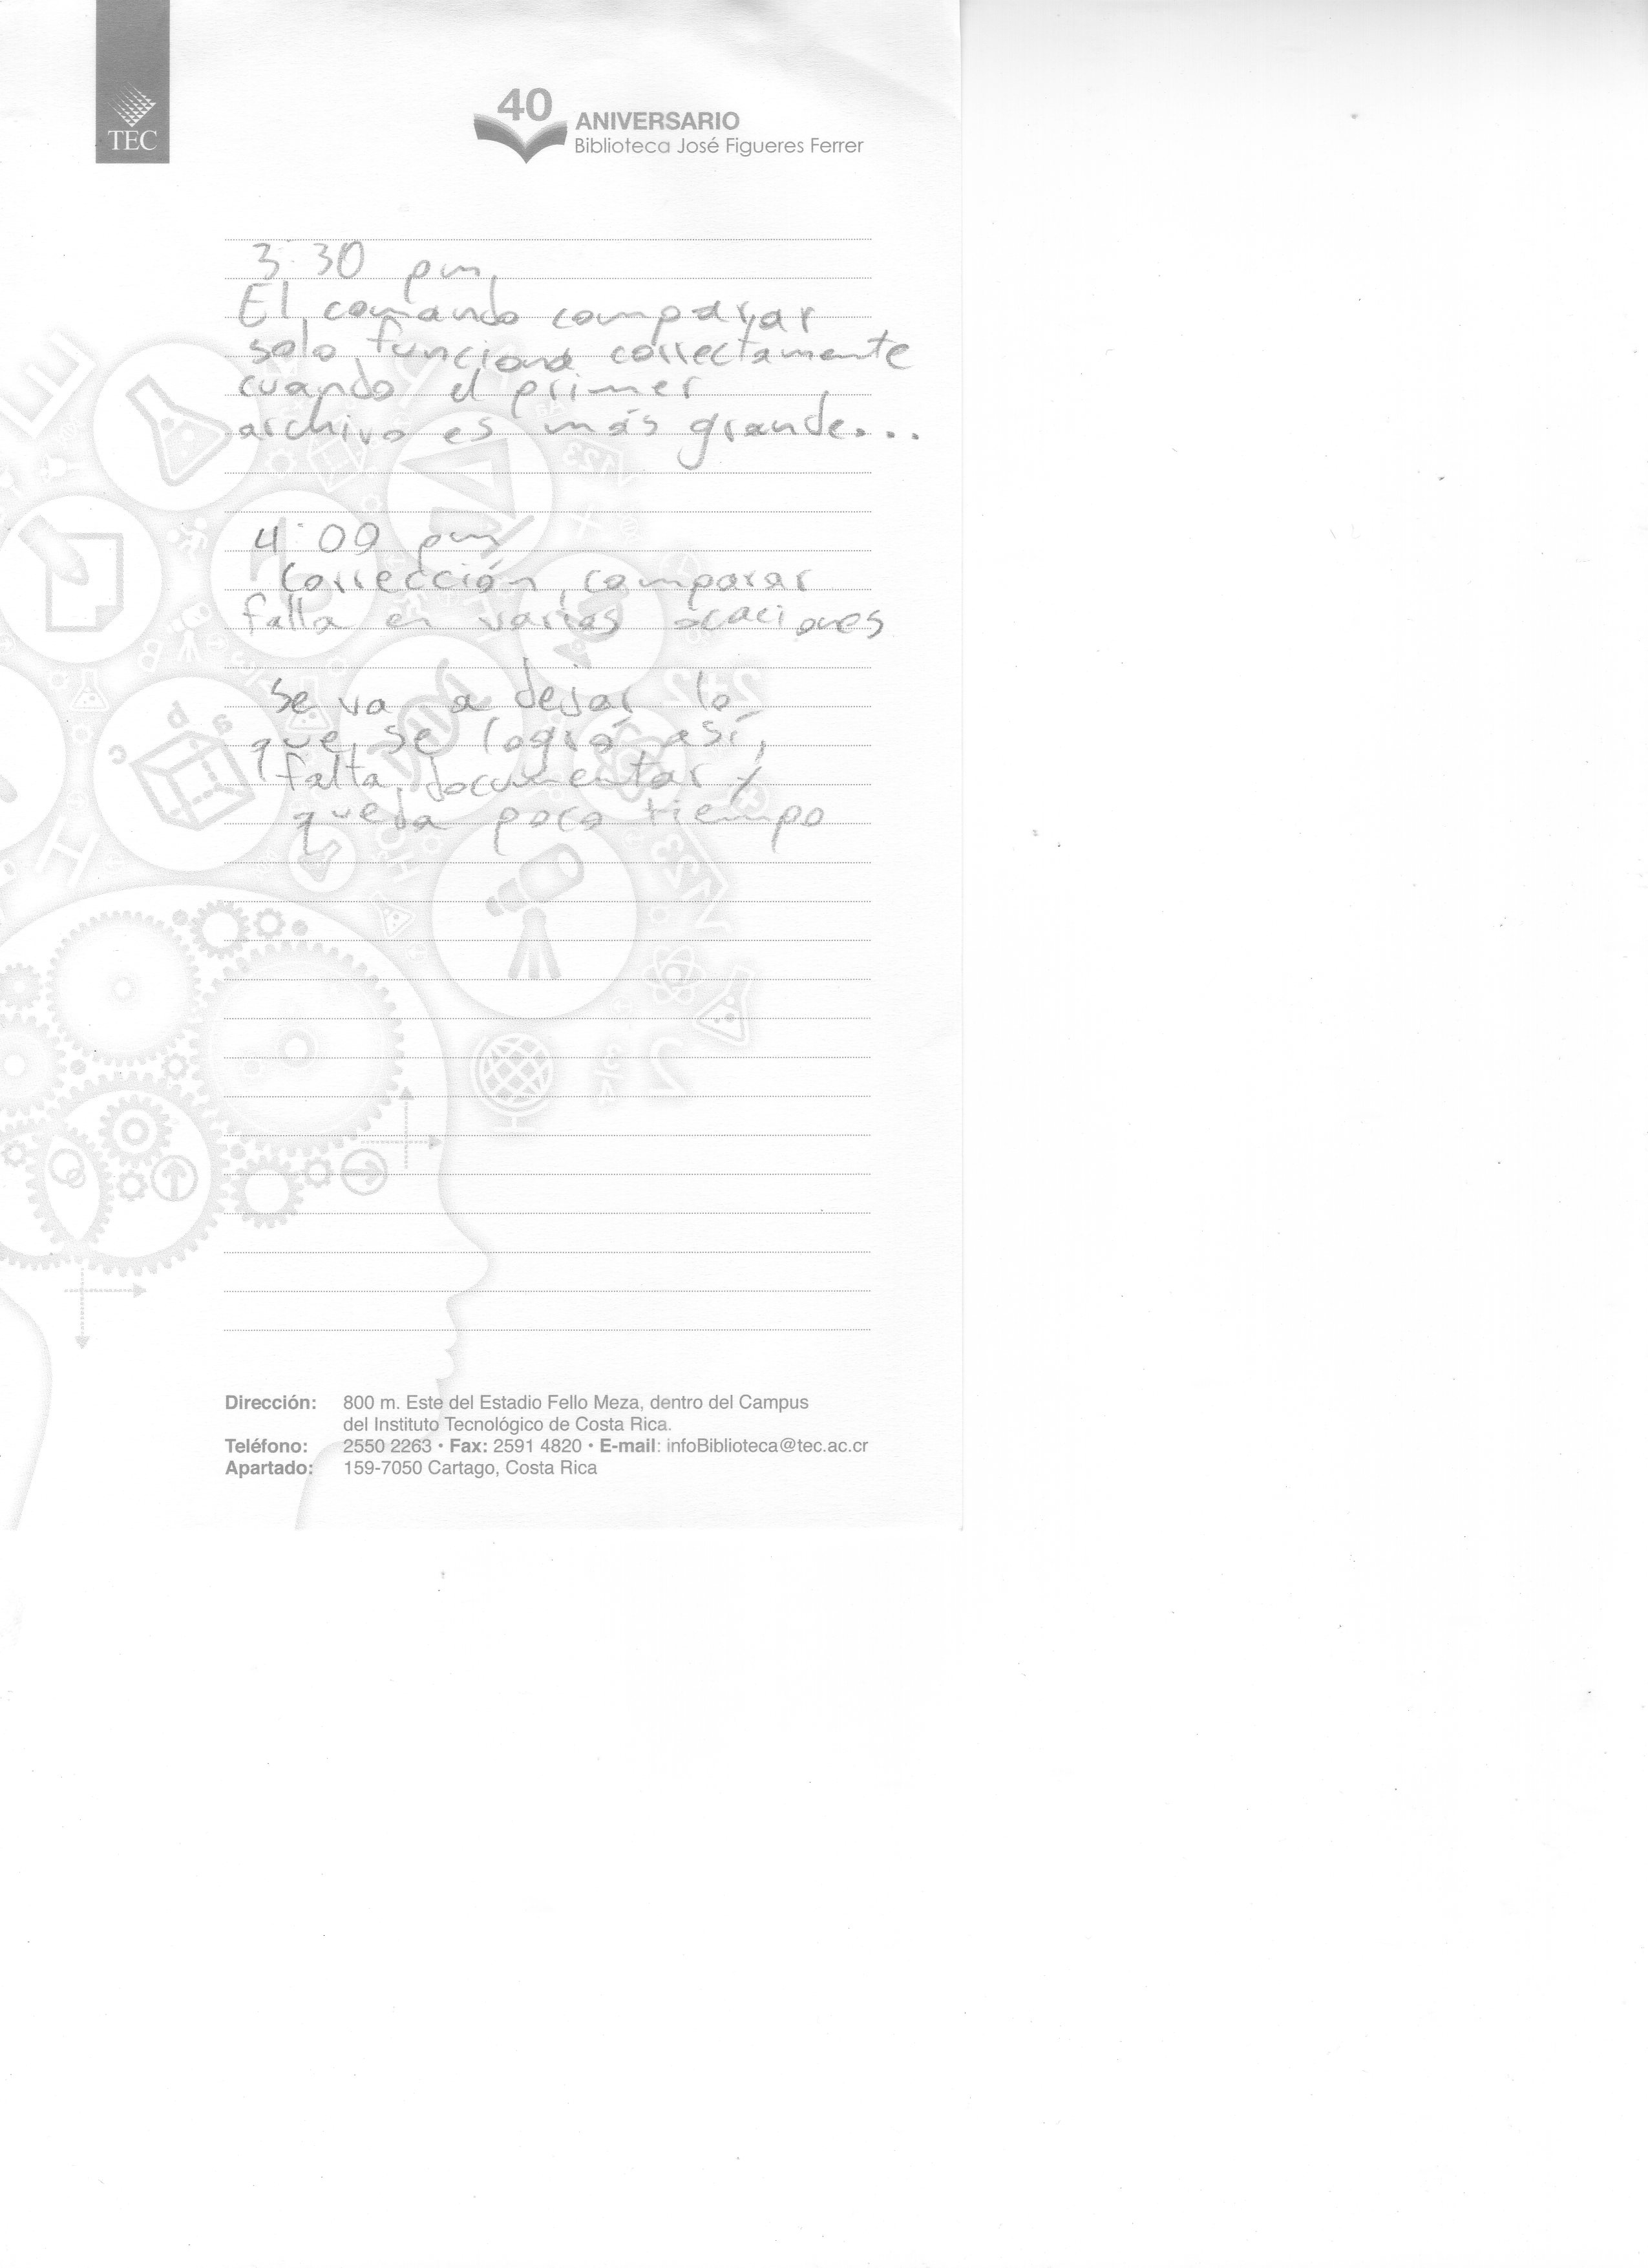 TEC
40
ANIVERSARIO
Biblioteca José Figueres Ferrer
3:30 pm
El comando comparar
solo funciona correctamente
cuando el primer
archivo es más grande...
4:00 pm
Corrección, comparar
falla en varias ocaciones
se va a dejar lo
que se logró así,
falta documentar y
queda poco tiempo
Dirección: 800 m. Este del Estadio Fello Meza, dentro del Campus
del Instituto Tecnológico de Costa Rica.
Teléfono: 2550 2263 • Fax: 2591 4820 • E-mail: infoBiblioteca@tec.ac.cr
Apartado: 159-7050 Cartago, Costa Rica